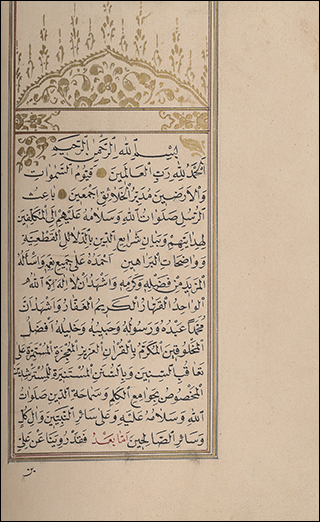 بسم الله الرحمن الرحيم
الحمد لله رب العالمين قيوم السموات
والارضين مدبر الخلائق اجمعين باعث
الرسل صلوات الله وسلامه عليهم الى المكلفين
لهدايتهم وبيان شرايع الدين بالدلائل القطعية
وواضحات البراهين احمده على جميع نعمه واسأله
المزيد من فضله وكرمه واشهد ان لا اله الا الله
الواحد القهار الكريم الغفار واشهد ان
محمدا عبده ورسوله وحبيبه وخليله افضل
المخلوقين المكرم بالقرآن العزيز المعجزة المستمرة على
تعاقب السنين وبالسنن المستنيرة للمسترشدين
المخصوص بجوامع الكلم وسماحة الدين صلوات
الله وسلامه عليه وعلى سائر النبيين وآل كل
وسائر الصالحين اما بعد فقد روينا عن علي